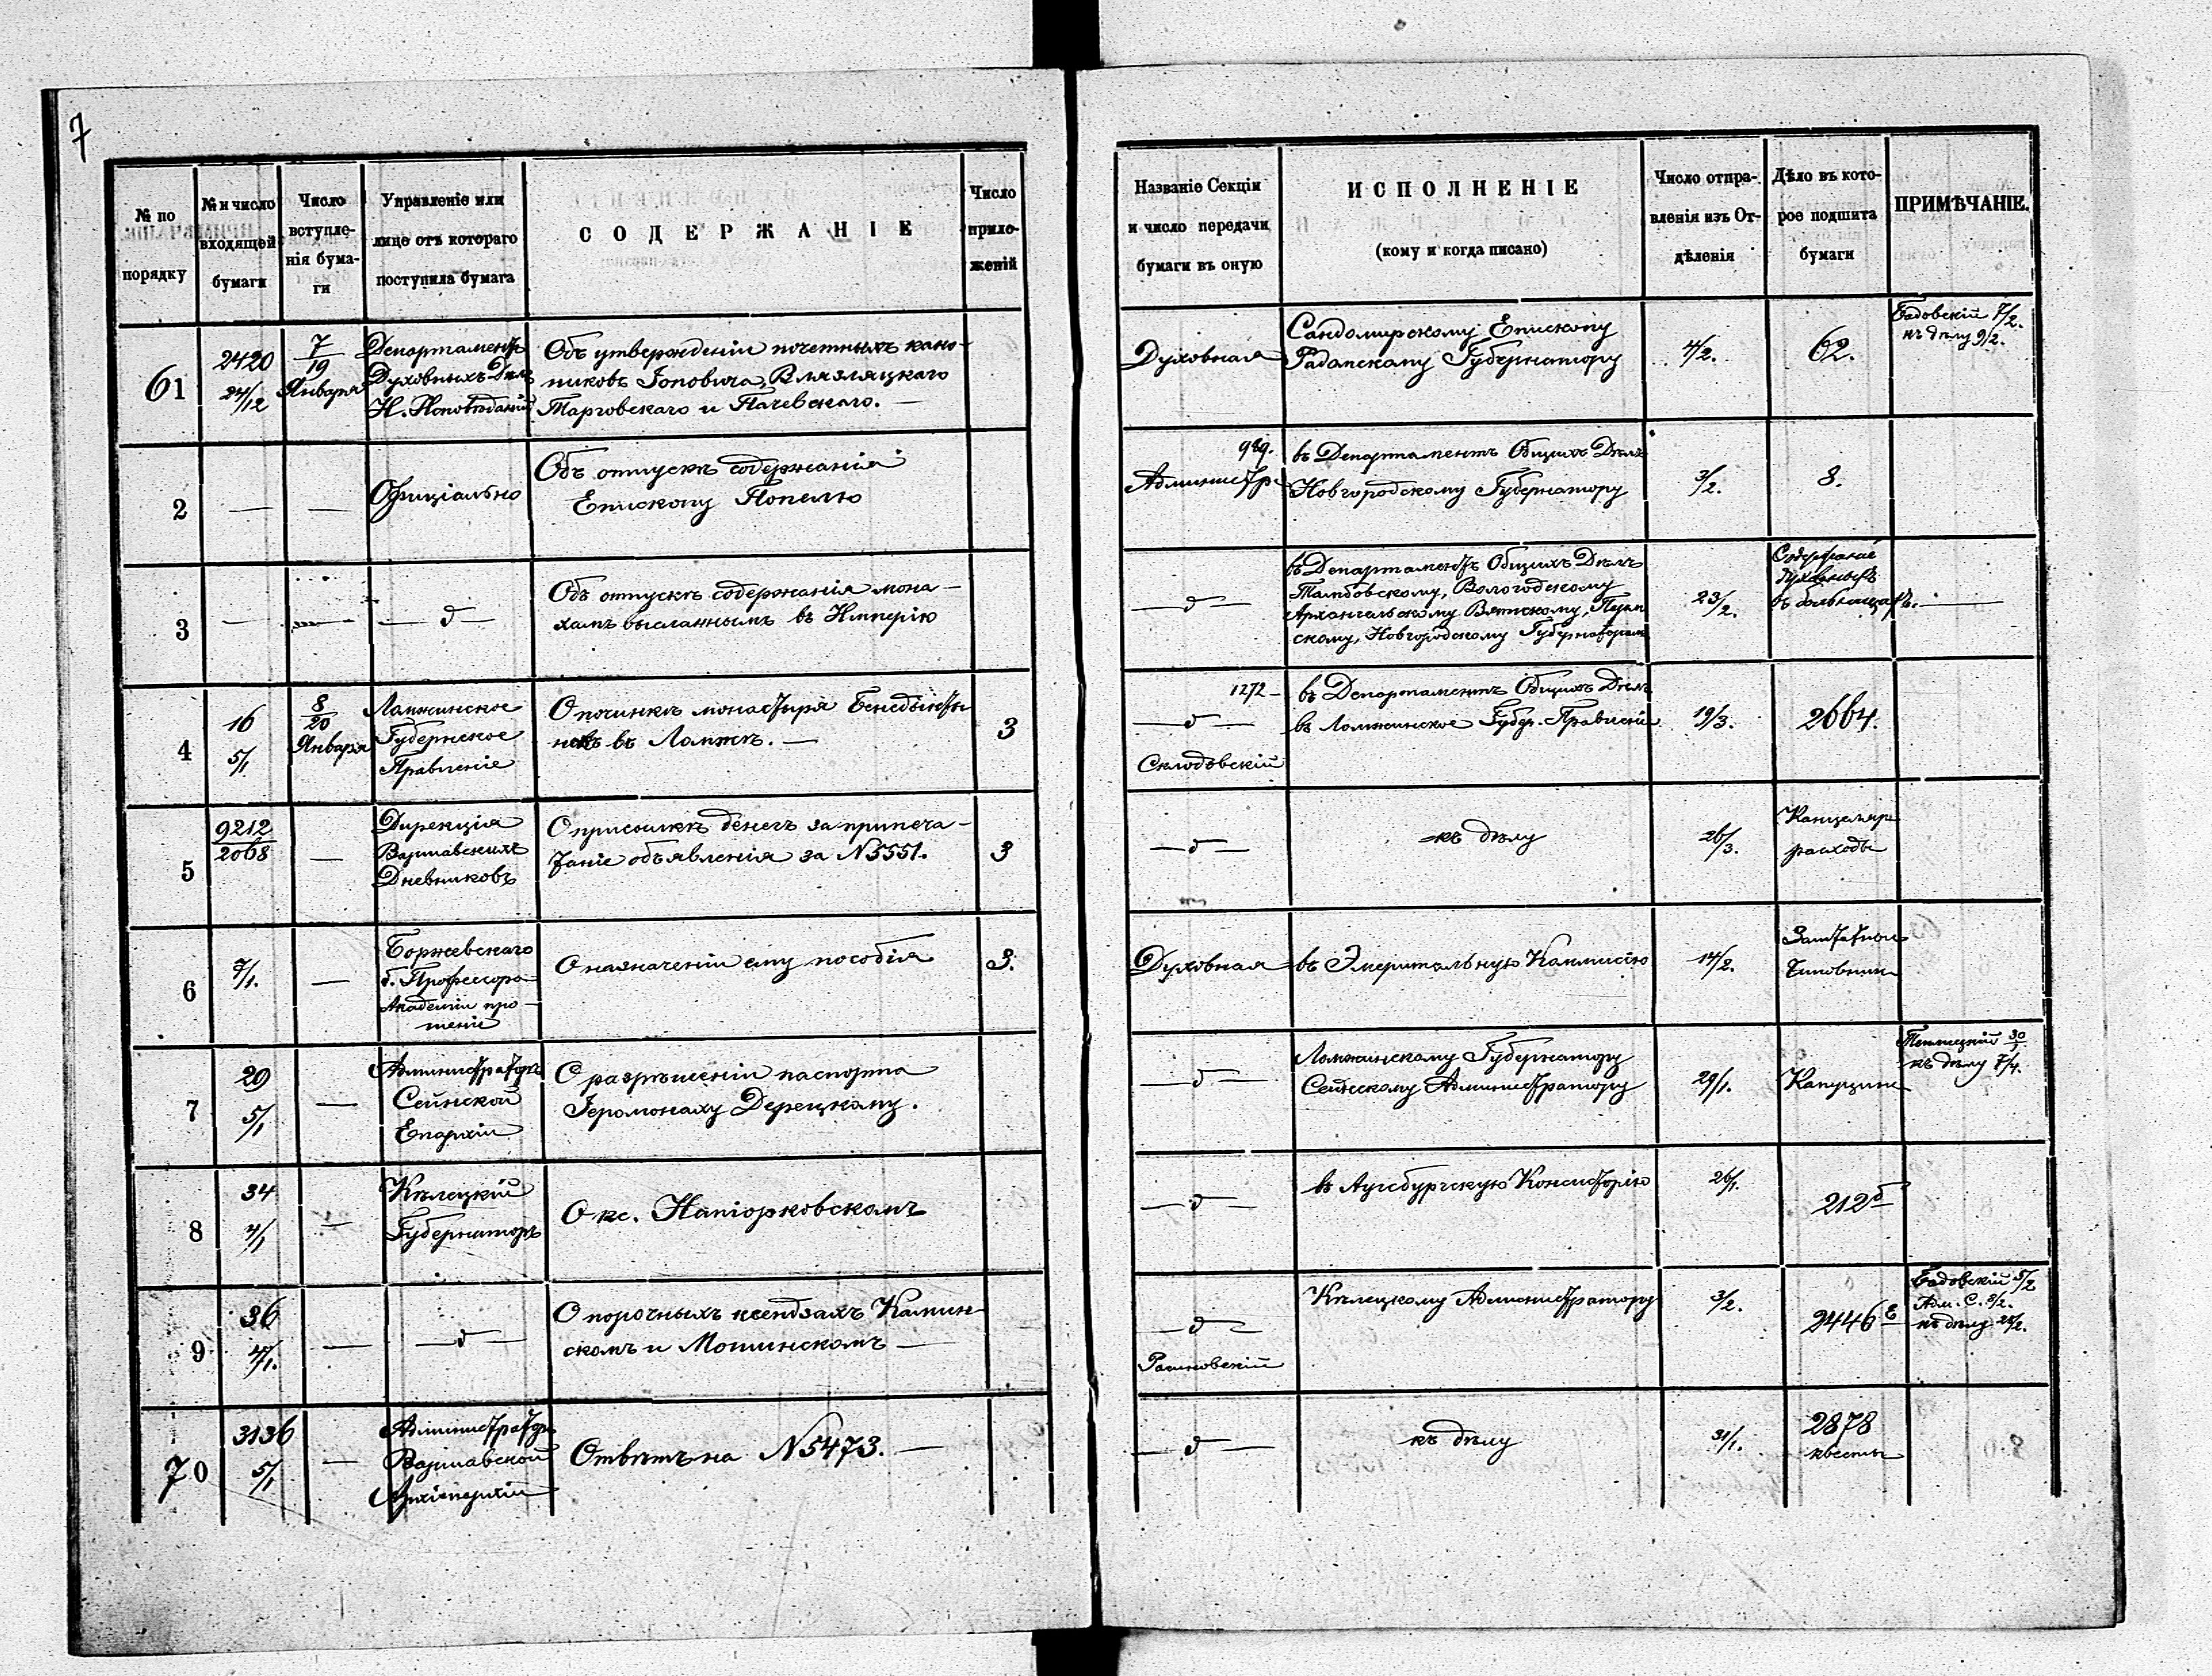 7
№ по
порядку
№ и число
входящей
бумаги
Число
вступле-
нія бума-
ги
Управленіе или
лице отъ котораго
поступила бумага
СОДЕРЖАНІЕ
Число
прило-
женій
Названіе Секціи
и число передачи
бумаги въ оную
ИСПОЛНЕНІЕ
(кому и когда писано)
Число отпра-
вленія изъ От-
дѣленія
Дѣло въ кото-
рое подшита
бумаги
ПРИМѢЧАНІЕ.
61
2420
24/12
7
19
Января
Департаментъ
Духовныхъ Дѣлъ
И. Исповѣданій
Объ утвержденіи почетныхъ кано-
никовъ Іоповича,
Тарговскаго и Пачевскаго. —
Духовная
Сандомирскому Епископу
Радомскому Губернатору
4/2.
62.
Бадовскій 7/2.
къ дѣлу 9/2.
2
—
—
Офиціально
Объ отпускѣ содержанія
Епископу Попелю
989.
Администр.
въ Департаментъ Общихъ Дѣлъ
Новгородскому Губернатору
3/2.
8.
3
—
—
— д —
Объ отпускѣ содержанія мона-
хамъ высланнымъ въ Имперію
— д —
въ Департаментъ Общихъ Дѣлъ
Тамбовскому, Вологодскому
Архангельскому Вятскому, Перм
скому, Новгородскому Губернаторамъ
23/2.
Содержаніе
духовныхъ
въ больницахъ. —
4
16
5/1
8
20
Января
Ломжинское
Губернское
Правленіе
О починкѣ монастыря Бенедикты
нокъ въ Ломжѣ. —
3
1272 —
— д —
Склодовскій
въ Департаментъ Общихъ Дѣлъ
въ Ломжинское Губер. Правленіе
19/3.
2664.
5
9212
2068
—
Дирекція
Варшавскихъ
Дневниковъ
О присылкѣ денегъ за припеча-
таніе объявленія за N 5551.
3
— д —
къ дѣлу
26/3.
Канцеляр
расходы
6
7/1.
—
Боржевскаго
б. Профессора
Академіи про-
шеніе
О назначеніи ему пособія
3.
Духовная
въ Эмеритальную Коммисію
14/2.
Заштатные
Чиновники
7
29
5/1
—
Администраторъ
Сейнской
Епархіи
О разрѣшеніи паспорта
Іеромонаху Дерецкому.
— д —
Ломжинскому Губернатору
Сейнскому Администратору
29/1.
Капуцины
30/1
къ дѣлу 7/4.
8
34
4/1
—
Кѣлецкій
Губернаторъ
О кс. Напіорковскомъ
— д —
въ Аугсбургскую Консисторію
26/1.
212 б
9
36
4/1.
—
— д —
О порочныхъ ксендзахъ Камин-
скомъ и Мошинскомъ —
— д —
Рашковскій
Кѣлецкому Администратору
3/2.
2446 Е
Бадовскій 5/2
Адм. С. 8/2.
къ дѣлу 28/2.
70
3136
5/1
—
Администраторъ
Варшавской
Архіепархіи
Отвѣтъ на N 5473. —
— д —
къ дѣлу
31/1.
2878
квесты